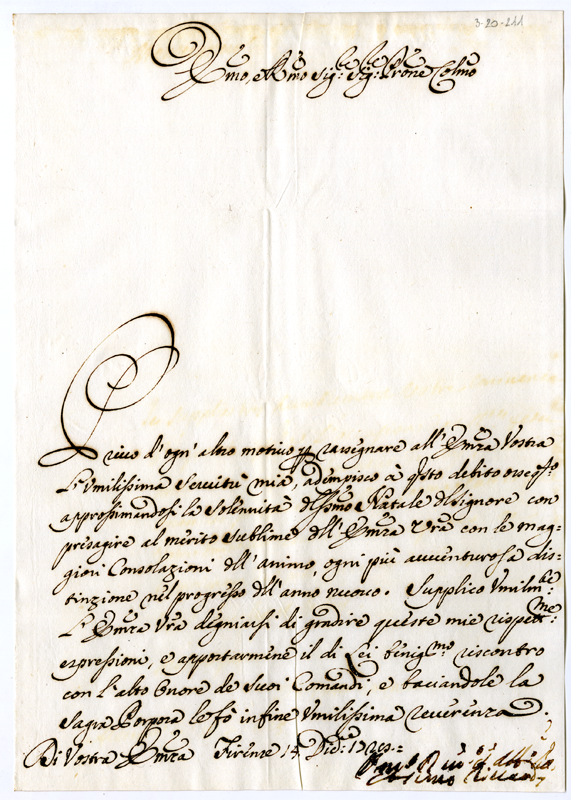 3-20-211
Emo, e Rmo Sig:re Sig:re Prone Colmo
Privo d'ogn' altro motivo p rasegnare all' Emza Vostra
L'Vmilissima Servitù mia, adempisco à qsto debito ora che
approssimandosi la Solennità del Ssmo Natale del Signore con
presagire al merito sublime dell' Emza Vra con le mag=
giori Consolazioni dell' animo, ogni più avventurosa dis=
tinzione nel progresso dell' anno nuovo. Supplico Vmilmte
L'Emza Vra degniarsi di gradire queste mie rispettme:
espressioni, e apportarmene il di Lei benigmo riscontro
con l'alto Onore de suoi Comandi, e baciandole la
Sagra Porpora le fò infine Vmilissima reverenza.
Di Vostra Emza Firenze 14 Dicb: